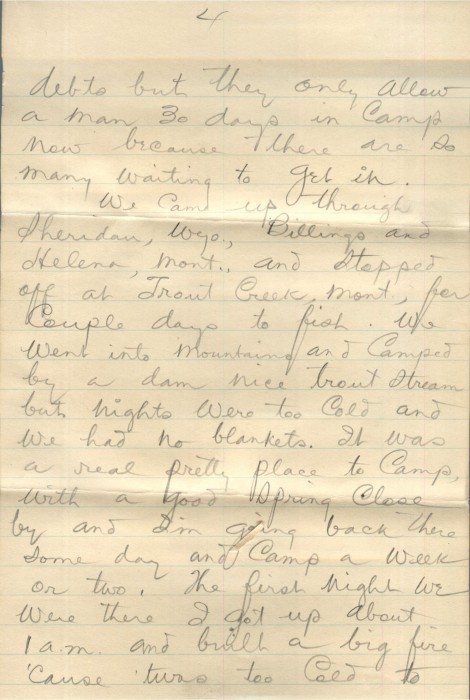 4
debts but they only allow
a man 30 days in Camp
now because there are so
many waiting to get in.
We came up through
Sheridan, Wyo., Billings and
Helena, Mont., and stopped
off at Trout Creek, Mont., for
Couple days to fish. We
went into Mountains and Camped
by a dam nice trout stream
but nights were too Cold and
we had no blankets. It was
a real pretty place to Camp,
with a good spring Close
by and I'm going back there
some day and Camp a week
or two. The first night we
were there I got up about
1 a.m. and built a big fire
'cause 'twas too Cold to